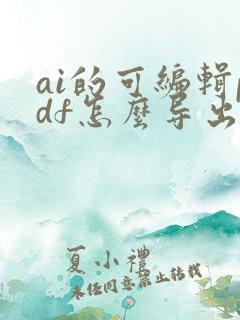 ai的可编辑p
df怎麽导出
夏小禮
未经同意禁止转载